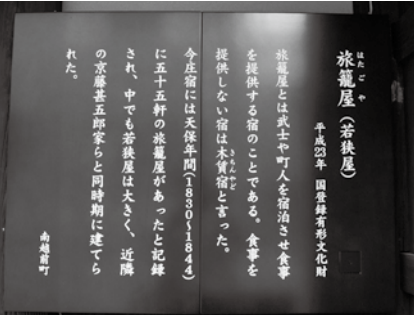 はたごや
旅籠屋(若狭屋)
平成23年 国登録有形文化財
旅籠屋とは武士や町人を宿泊させ食事
を提供する宿のことである。食事を
提供しない宿は木賃宿と言った。
きちんやど
今庄宿には天保年間(1830~1844)
に五十五軒の旅籠屋があったと記録
され、中でも若狭屋は大きく、近隣
の京藤甚五郎家らと同時期に建てら
れた。
南越前町